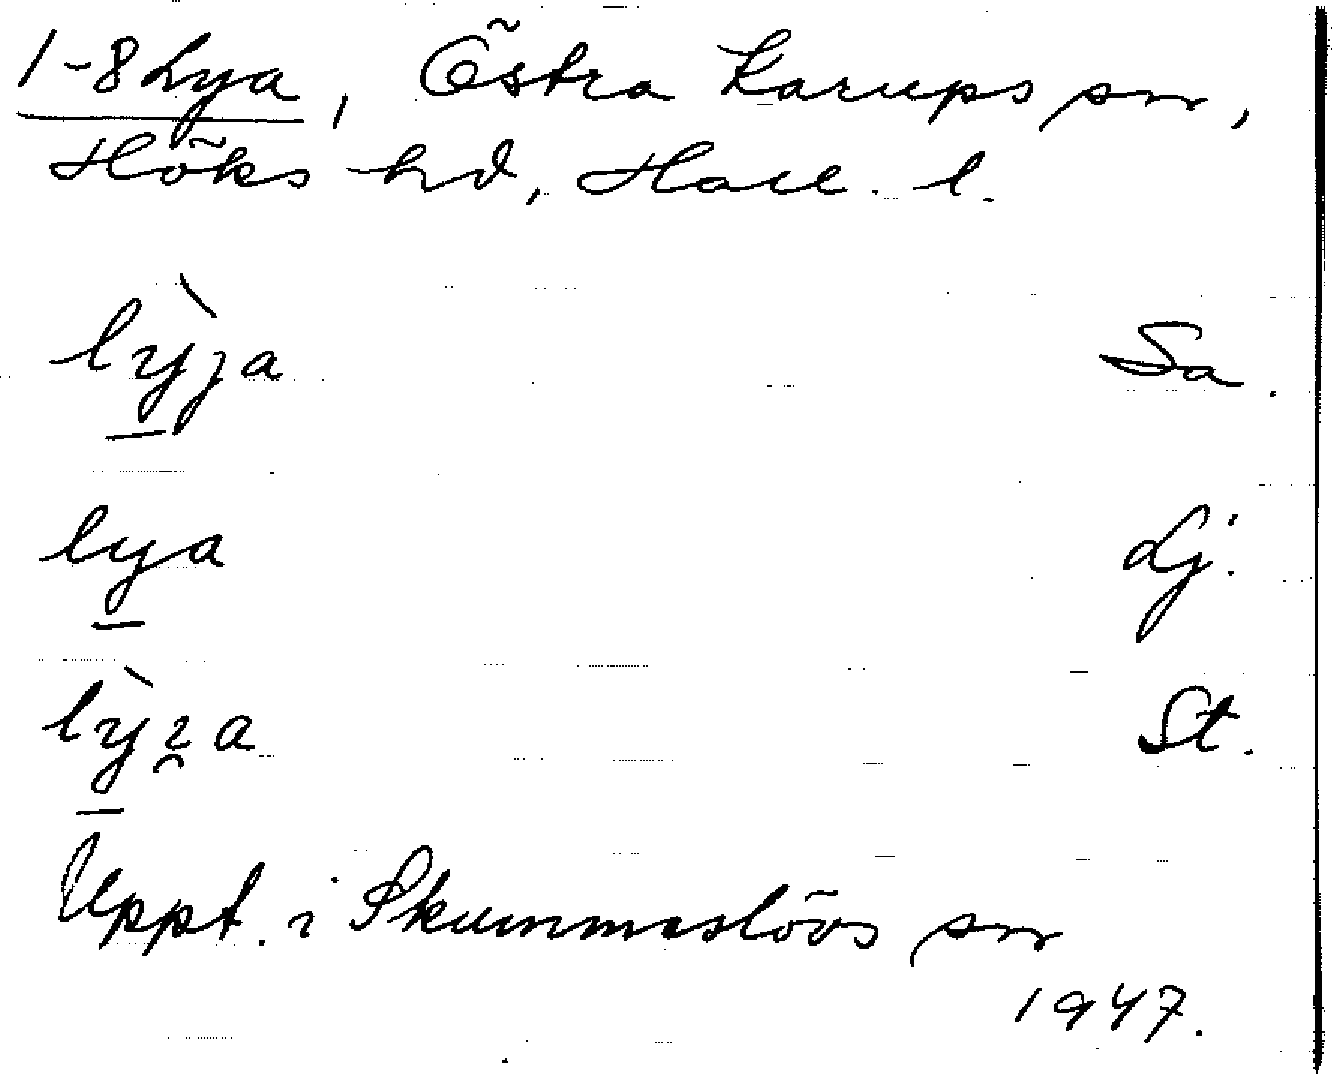 1-8 Lya, Östra Karups sn,
Höks hd, Hall. l.
lỳja Sa.
lya Lj.
lỳı̯a St.
Uppt. i Skummeslövs sn
1947.